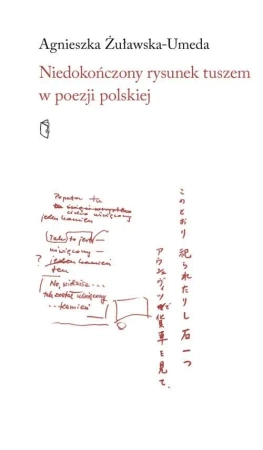 Agnieszka Żuławska-Umeda
Niedokończony rysunek tuszem
w poezji polskiej
ta
uświęcony
jeden kamień
(Jak) to jest –
uświęcony –
? jeden kamień
ten
No, widzisz...
tak został uświęcony
... kamień
このとおり 祀られたりし 石一つ
アウシュヴィッツ 貨車を見て